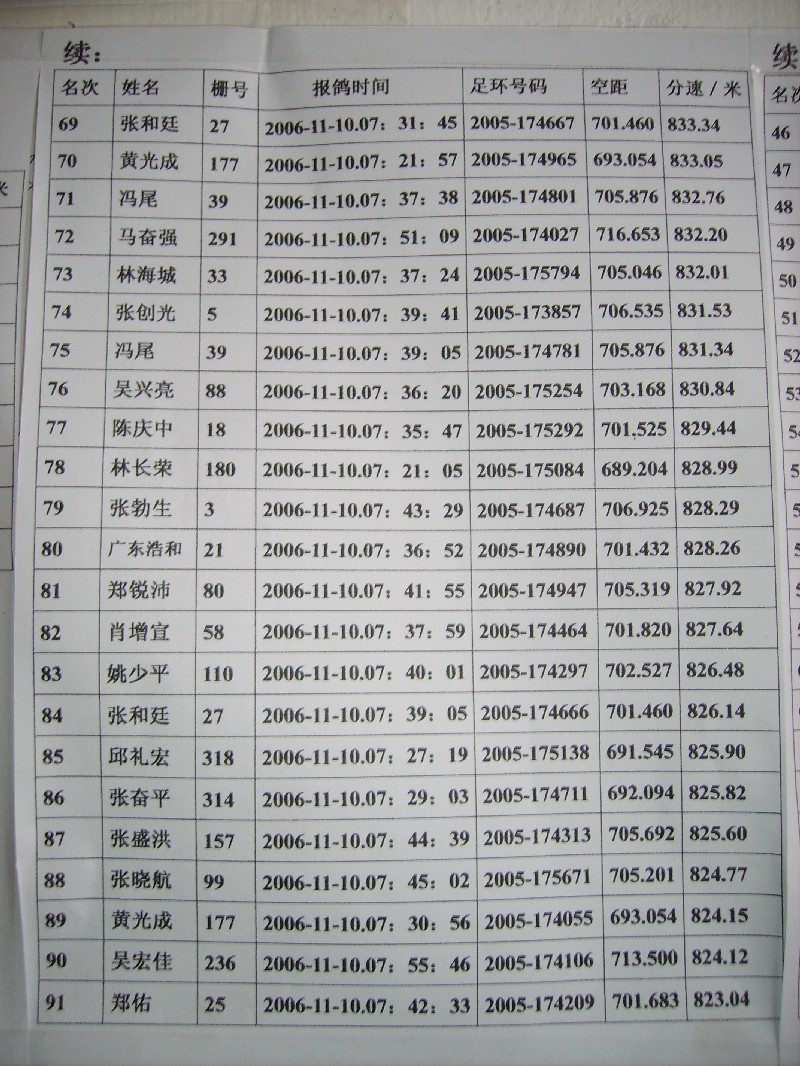 续：
名次 姓名 棚号 报鸽时间 足环号码 空距 分速／米
69 张和廷 27 2006-11-10.07：31：45 2005-174667 701.460 833.34
70 黄光成 177 2006-11-10.07：21：57 2005-174965 693.054 833.05
71 冯尾 39 2006-11-10.07：37：38 2005-174801 705.876 832.76
72 马奋强 291 2006-11-10.07：51：09 2005-174027 716.653 832.20
73 林海城 33 2006-11-10.07：37：24 2005-175794 705.046 832.01
74 张创光 5 2006-11-10.07：39：41 2005-173857 706.535 831.53
75 冯尾 39 2006-11-10.07：39：05 2005-174781 705.876 831.34
76 吴兴亮 88 2006-11-10.07：36：20 2005-175254 703.168 830.84
77 陈庆中 18 2006-11-10.07：35：47 2005-175292 701.525 829.44
78 林长荣 180 2006-11-10.07：21：05 2005-175084 689.204 828.99
79 张勃生 3 2006-11-10.07：43：29 2005-174687 706.925 828.29
80 广东浩和 21 2006-11-10.07：36：52 2005-174890 701.432 828.26
81 郑锐沛 80 2006-11-10.07：41：55 2005-174947 705.319 827.92
82 肖增宜 58 2006-11-10.07：37：59 2005-174464 701.820 827.64
83 姚少平 110 2006-11-10.07：40：01 2005-174297 702.527 826.48
84 张和廷 27 2006-11-10.07：39：05 2005-174666 701.460 826.14
85 邱礼宏 318 2006-11-10.07：27：19 2005-175138 691.545 825.90
86 张奋平 314 2006-11-10.07：29：03 2005-174711 692.094 825.82
87 张盛洪 157 2006-11-10.07：44：39 2005-174313 705.692 825.60
88 张晓航 99 2006-11-10.07：45：02 2005-175671 705.201 824.77
89 黄光成 177 2006-11-10.07：30：56 2005-174055 693.054 824.15
90 吴宏佳 236 2006-11-10.07：55：46 2005-174106 713.500 824.12
91 郑佑 25 2006-11-10.07：42：33 2005-174209 701.683 823.04
续
名次
46
47
48
49
50
51
52
53